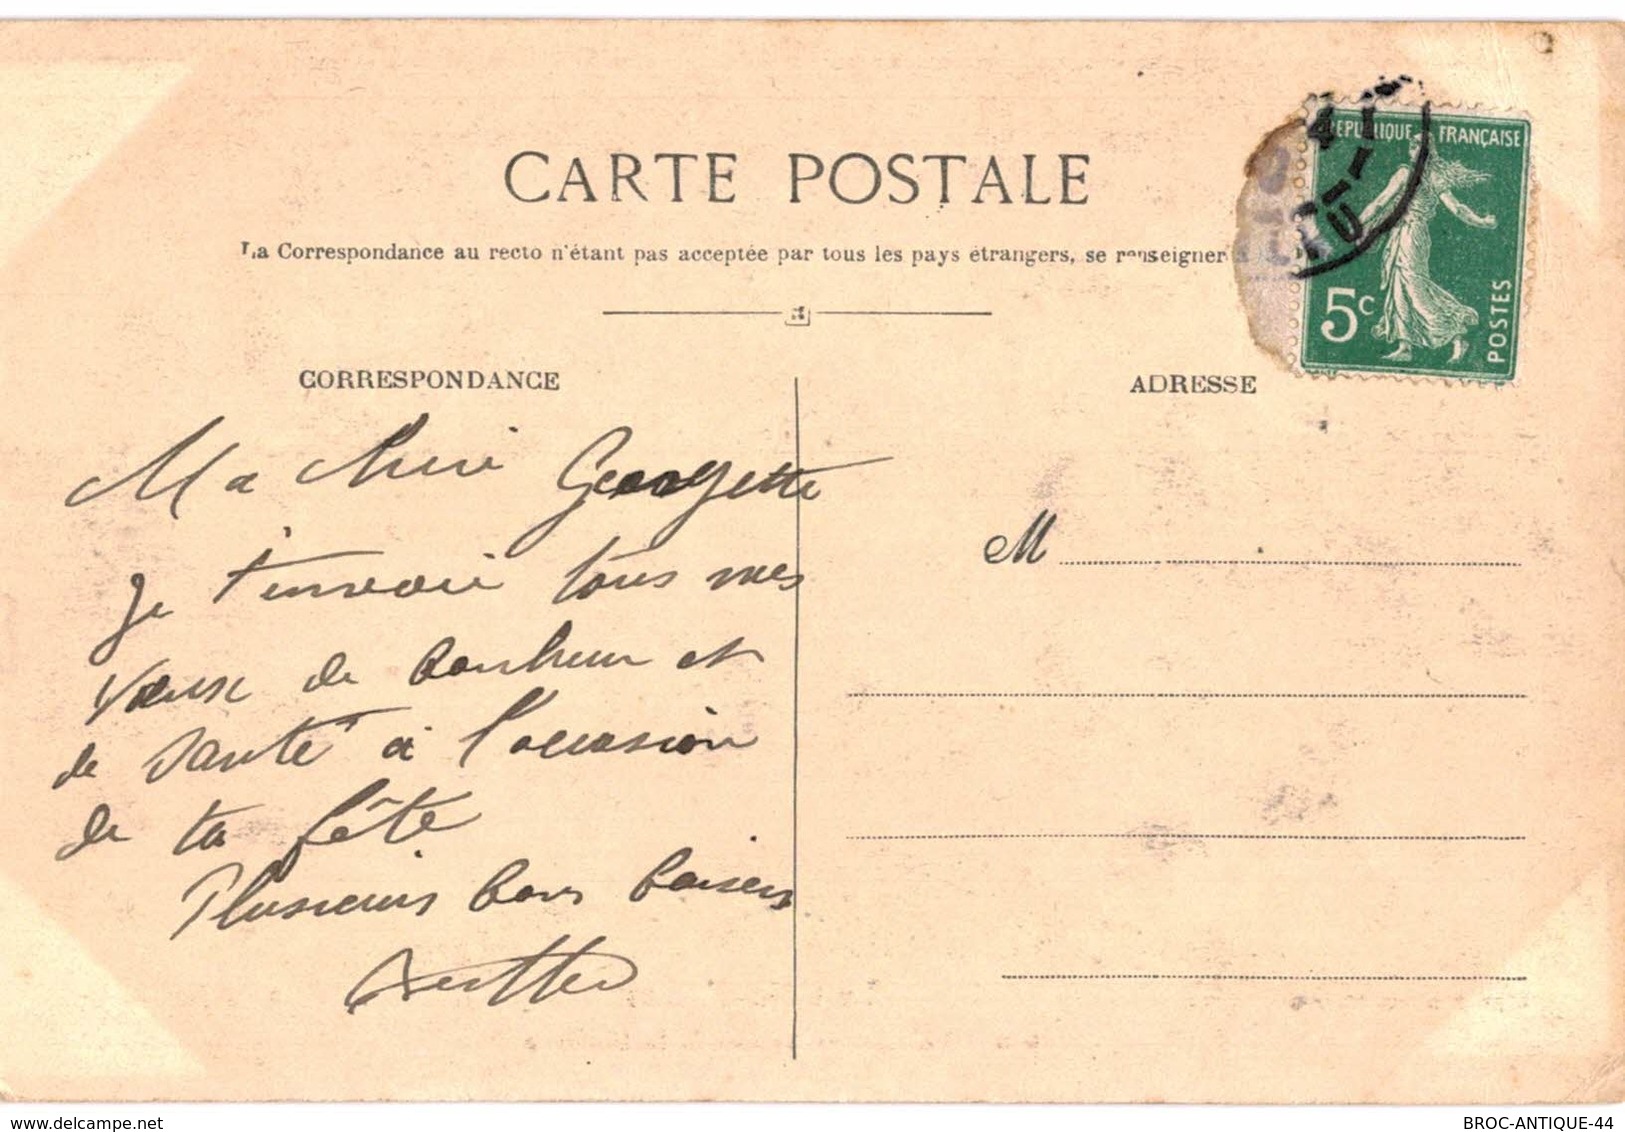 CARTE POSTALE
La Correspondance au recto n'étant pas acceptée par tous les pays étrangers, se renseigner
RÉPUBLIQUE FRANÇAISE
5c
POSTES
CORRESPONDANCE
ADRESSE
Ma chère Georgette
je t'envoie tous mes
vœux de bonheur et
de santé à l'occasion
de ta fête
Plusieurs bons baisers
M
delcampe.net
BROC-ANTIQUE-44